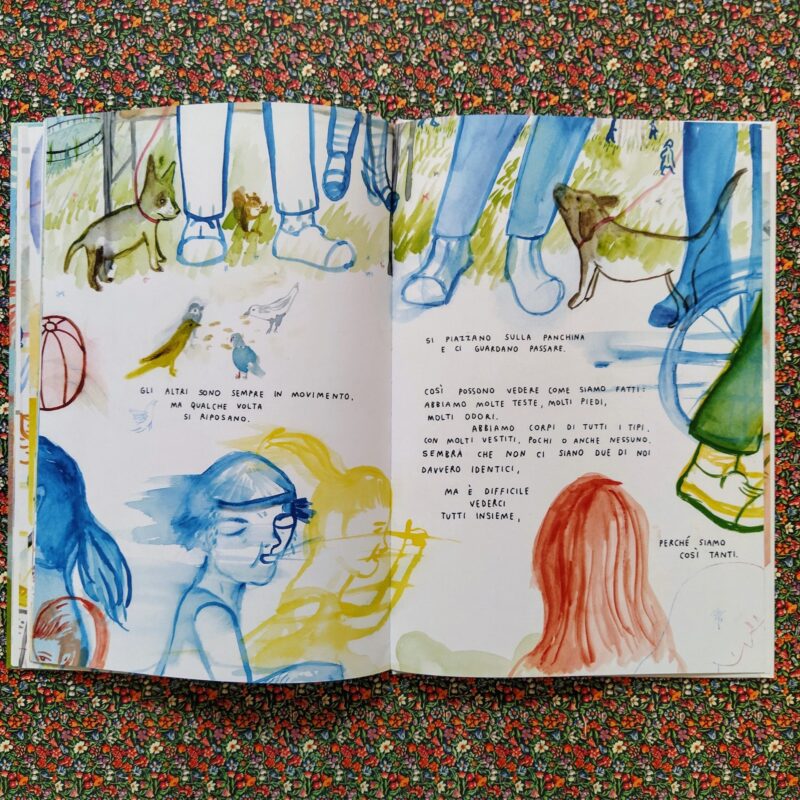 GLI ALTRI SONO SEMPRE IN MOVIMENTO,
MA QUALCHE VOLTA
SI RIPOSANO.
SI PIAZZANO SULLA PANCHINA
E CI GUARDANO PASSARE.
COSÌ POSSONO VEDERE COME SIAMO FATTI:
ABBIAMO MOLTE TESTE, MOLTI PIEDI,
MOLTI ODORI.
ABBIAMO CORPI DI TUTTI I TIPI,
CON MOLTI VESTITI, POCHI O ANCHE NESSUNO.
SEMBRA CHE NON CI SIANO DUE DI NOI
DAVVERO IDENTICI,
MA È DIFFICILE
VEDERCI
TUTTI INSIEME,
PERCHÉ SIAMO
COSÌ TANTI.